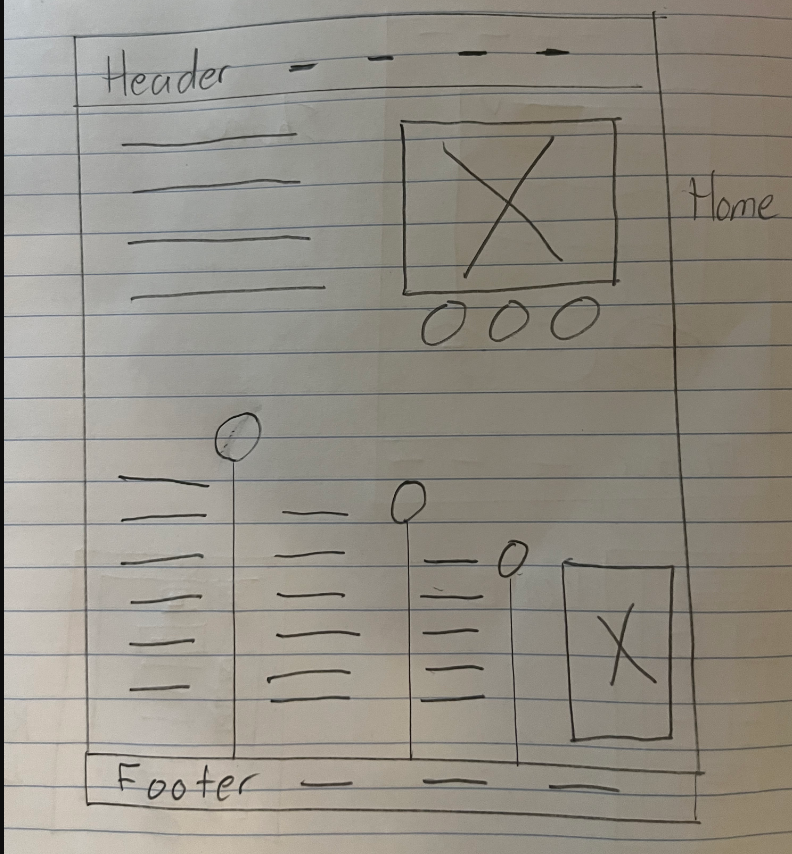 Header
Home
Footer